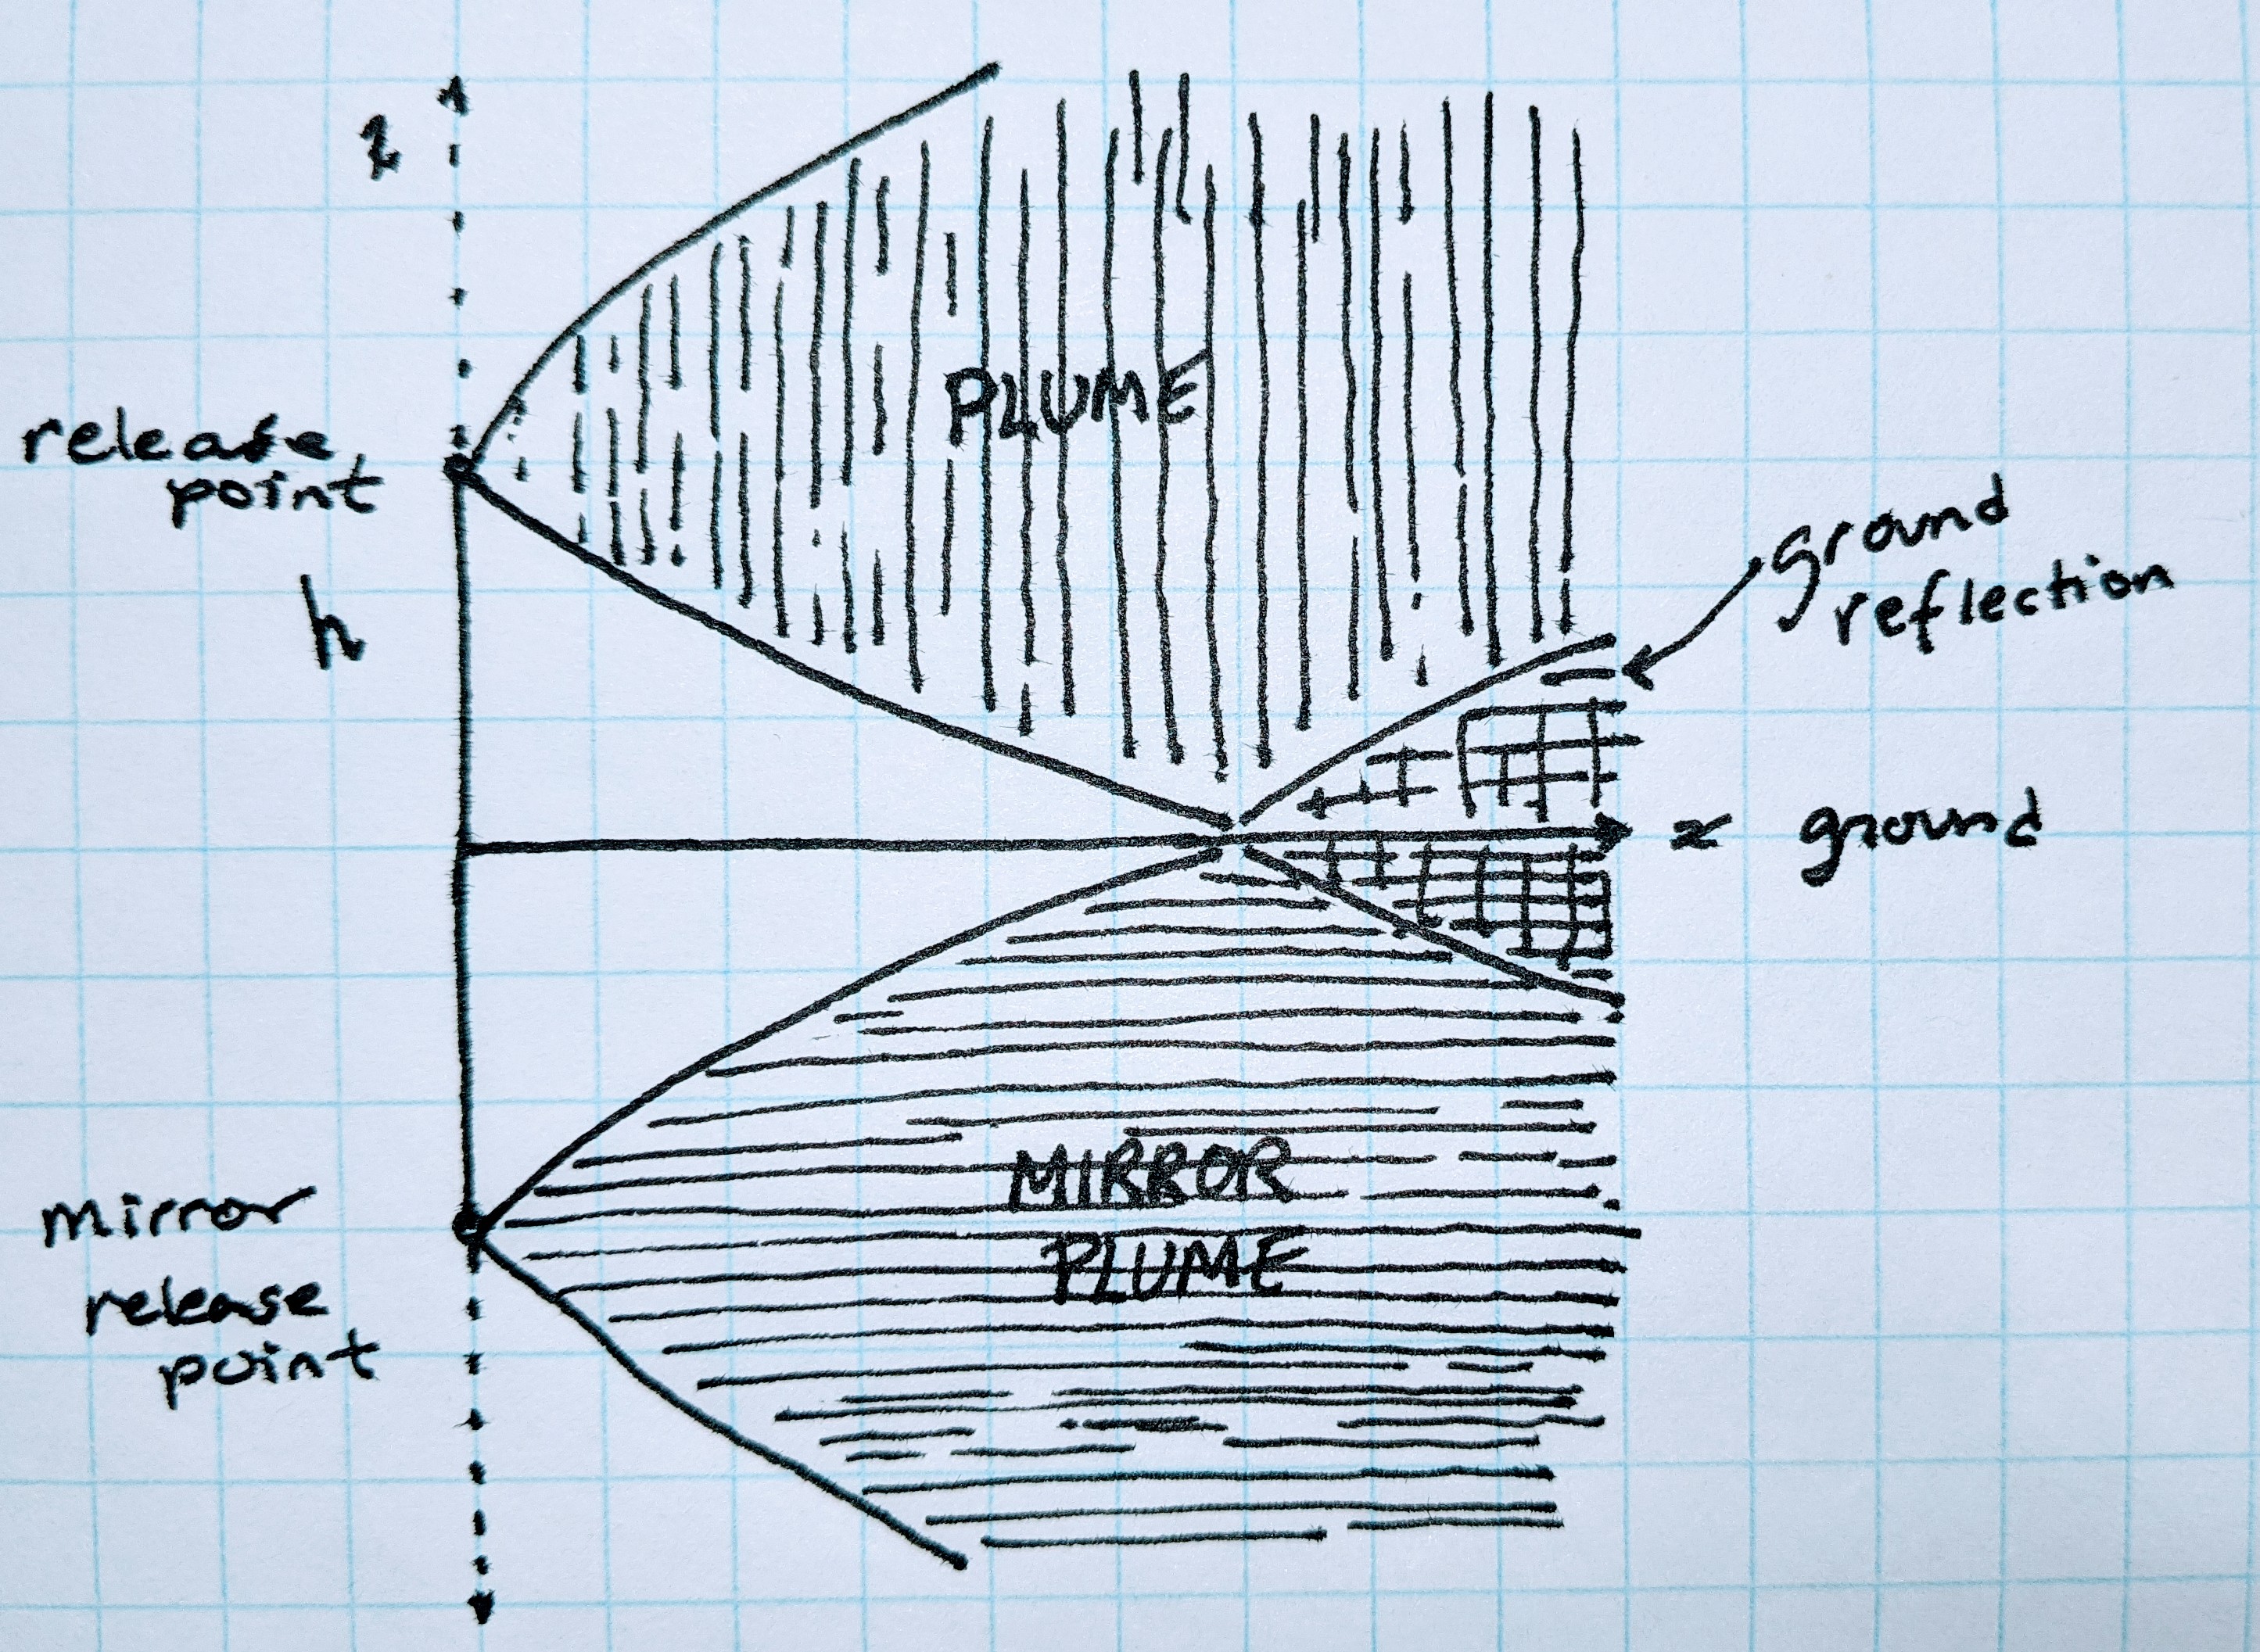 z
release
point
h
PLUME
ground
reflection
x ground
MIRROR
PLUME
mirror
release
point